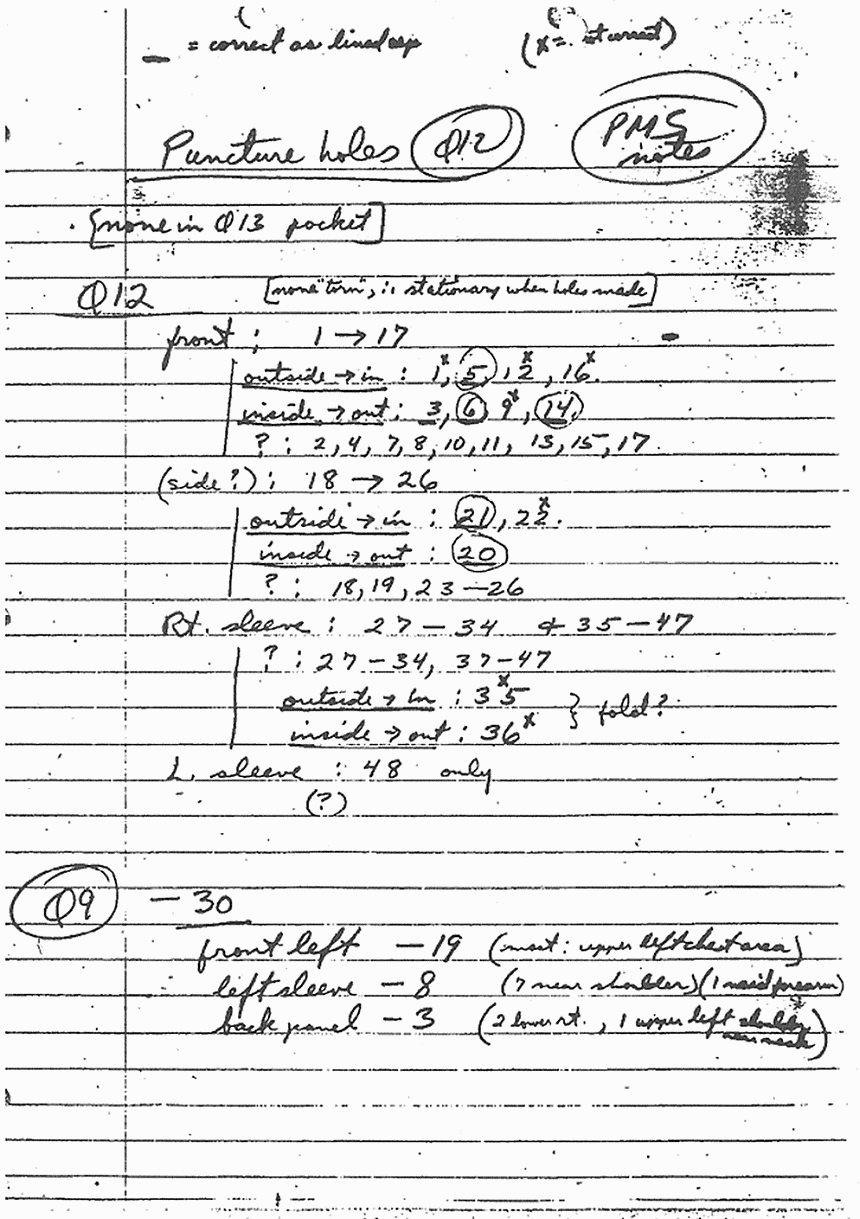 = correct as lined up (x = not correct)
Puncture holes Q12 PMS
notes
. [none in Q13 pocket]
Q12 [none "torn", is stationary when holes made]
front : 1 → 17
outside → in : 1x, 5, 12x, 16x.
inside → out : 3, 6, 9x, 14.
? : 2, 4, 7, 8, 10, 11, 13, 15, 17.
(side?) : 18 → 26
outside → in : 21, 22x.
inside → out : 20
? : 18, 19, 23 – 26
Rt. sleeve : 27 – 34 & 35 – 47
? : 27 – 34, 37 – 47
outside → in : 35x } fold?
inside → out : 36x
L. sleeve : 48 only
(?)
Q9 – 30
front left – 19 (most : upper left chest area)
left sleeve – 8 (7 near shoulder) (1 mid forearm)
back panel – 3 (2 lower rt., 1 upper left shoulder
near neck)